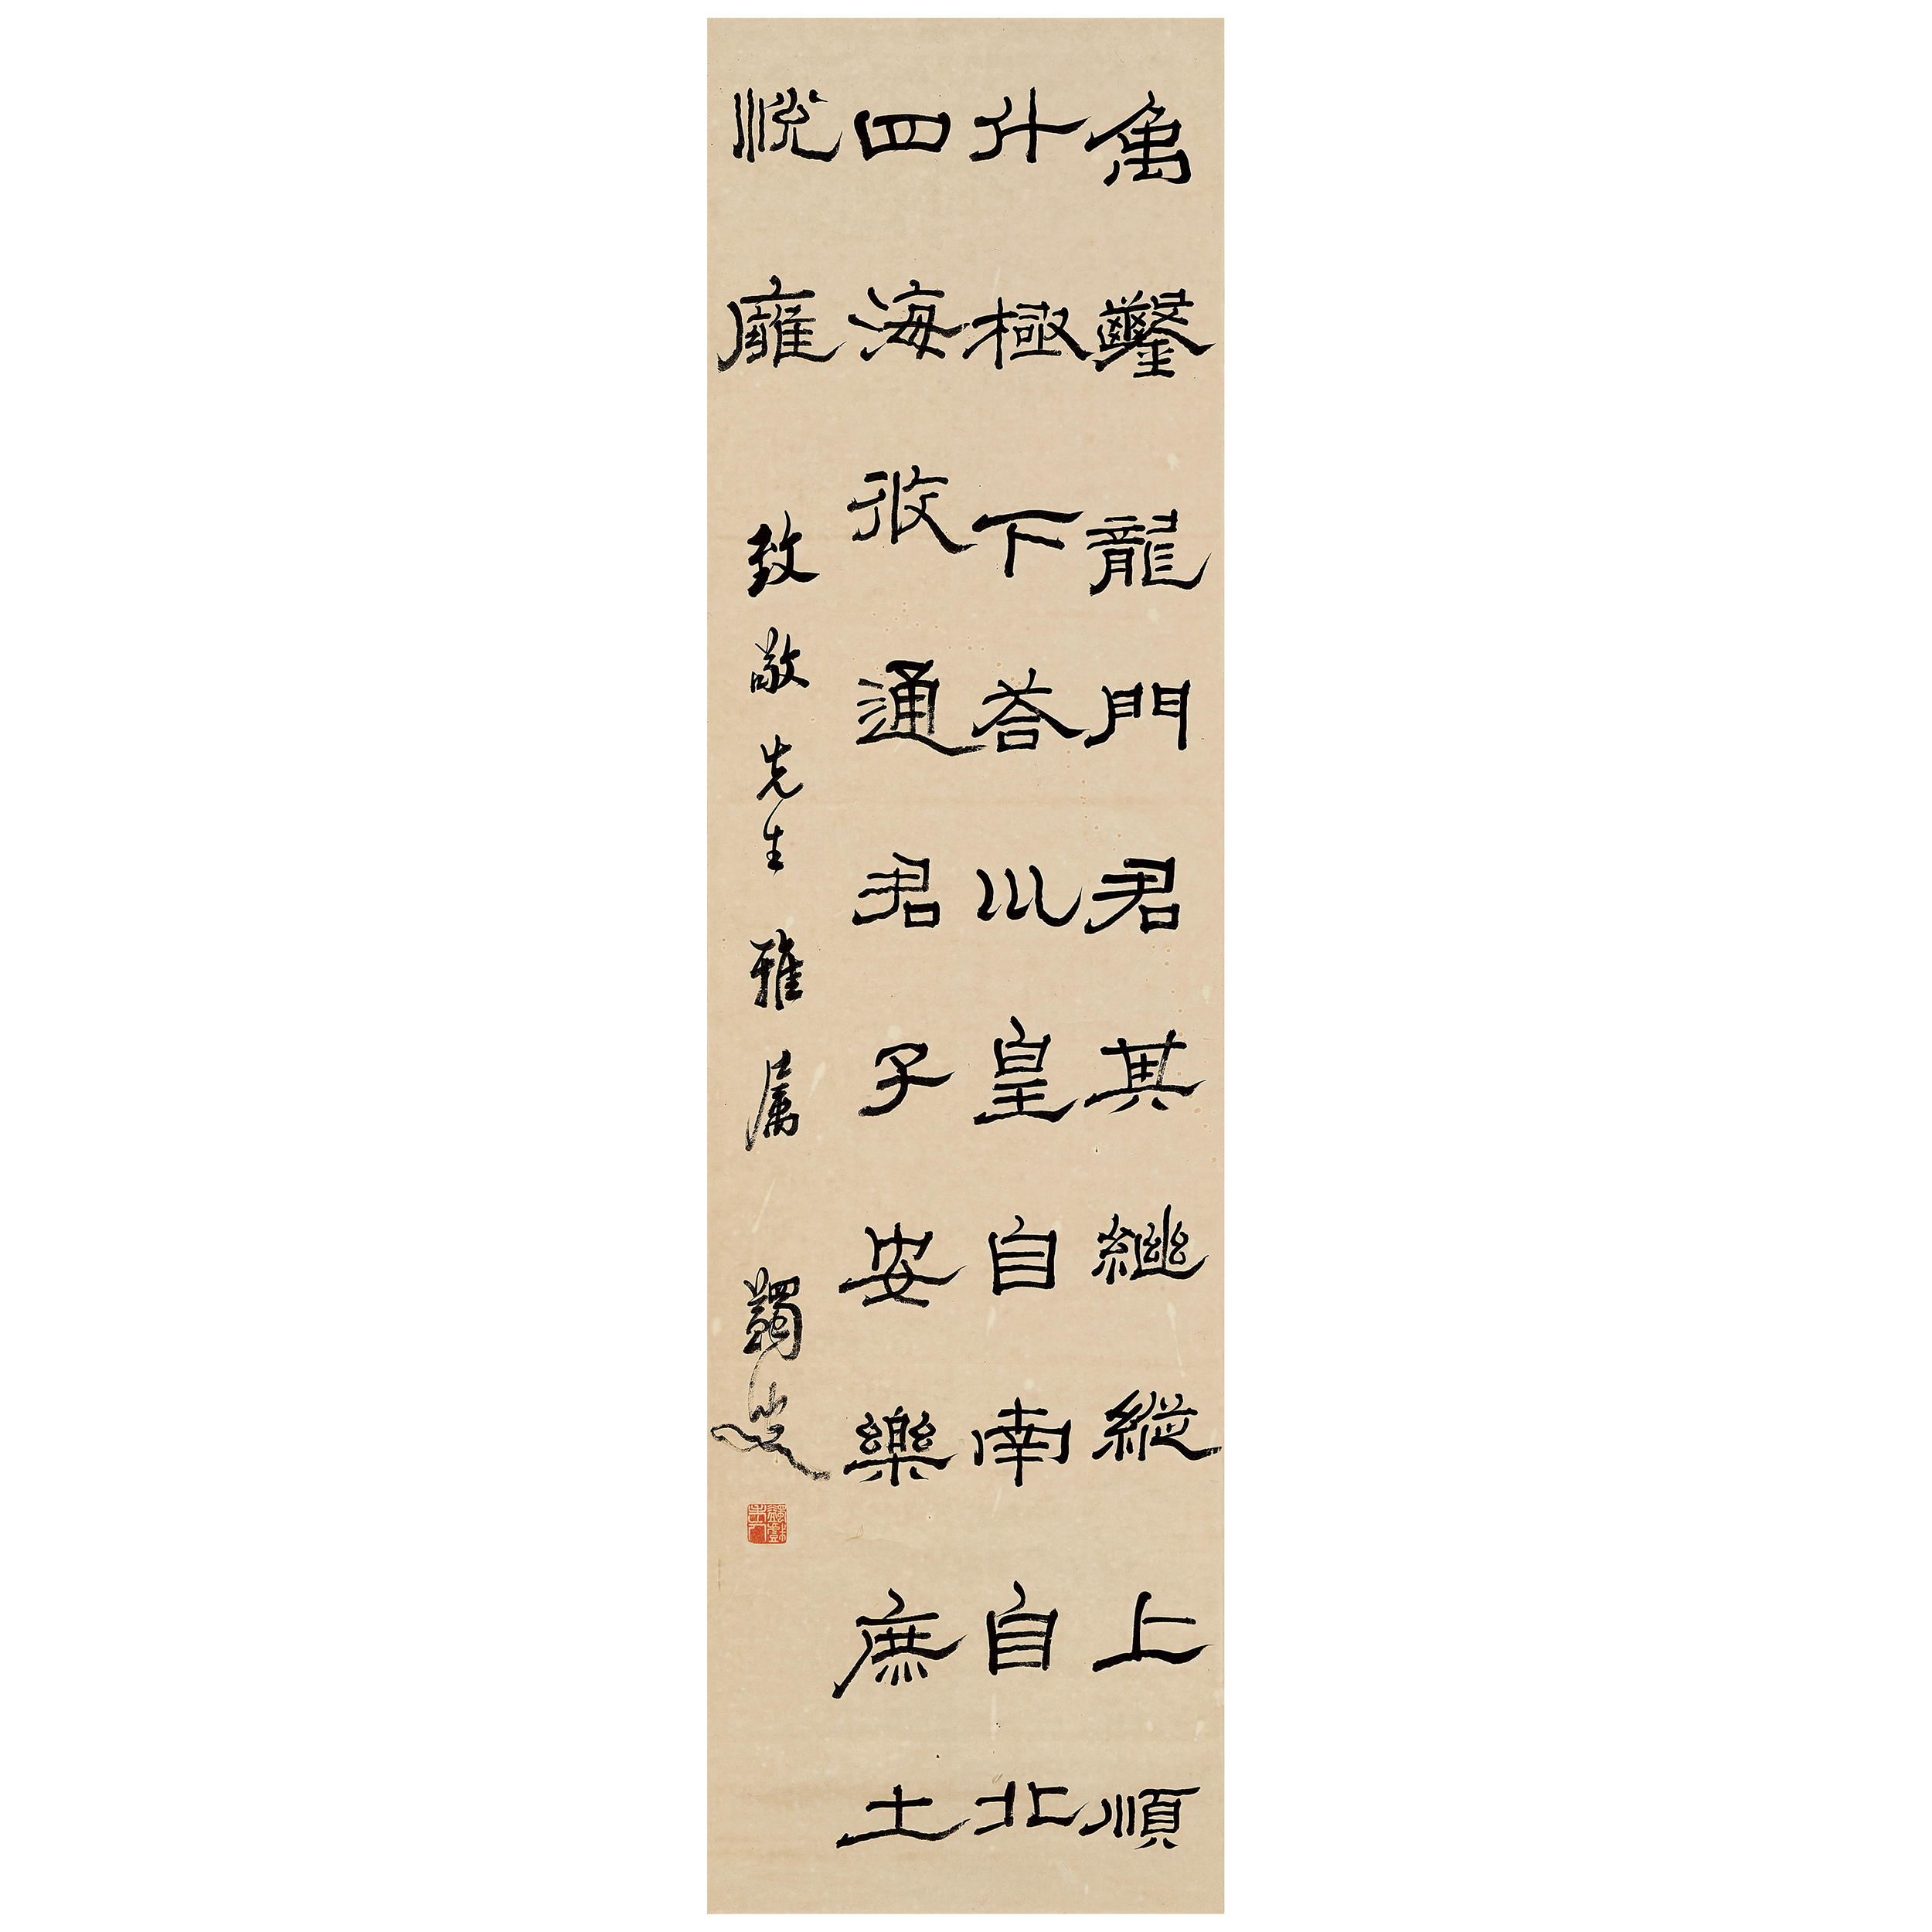 禹鑿龍門君其繼縱上順
斗極下荅巛皇自南自北
四海攸通君子安樂庶士
悅廱
致敬先生雅属 蠲叟